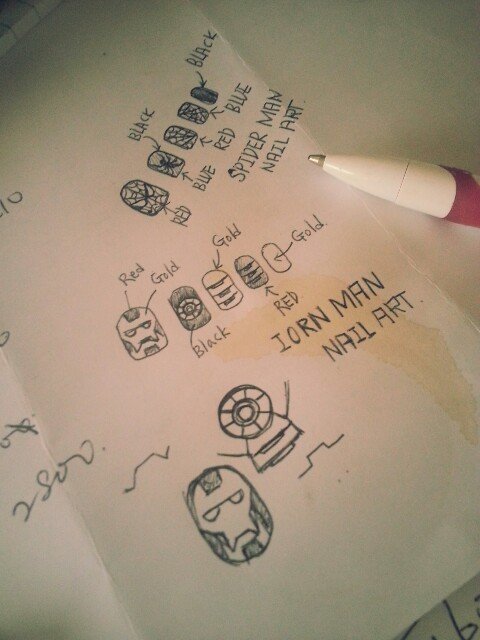 BLACK
BLACK
BLUE
RED
BLUE
RED
SPIDER MAN
NAIL ART
Red
Gold
Gold
Gold
Black
RED
IORN MAN
NAIL ART
2800